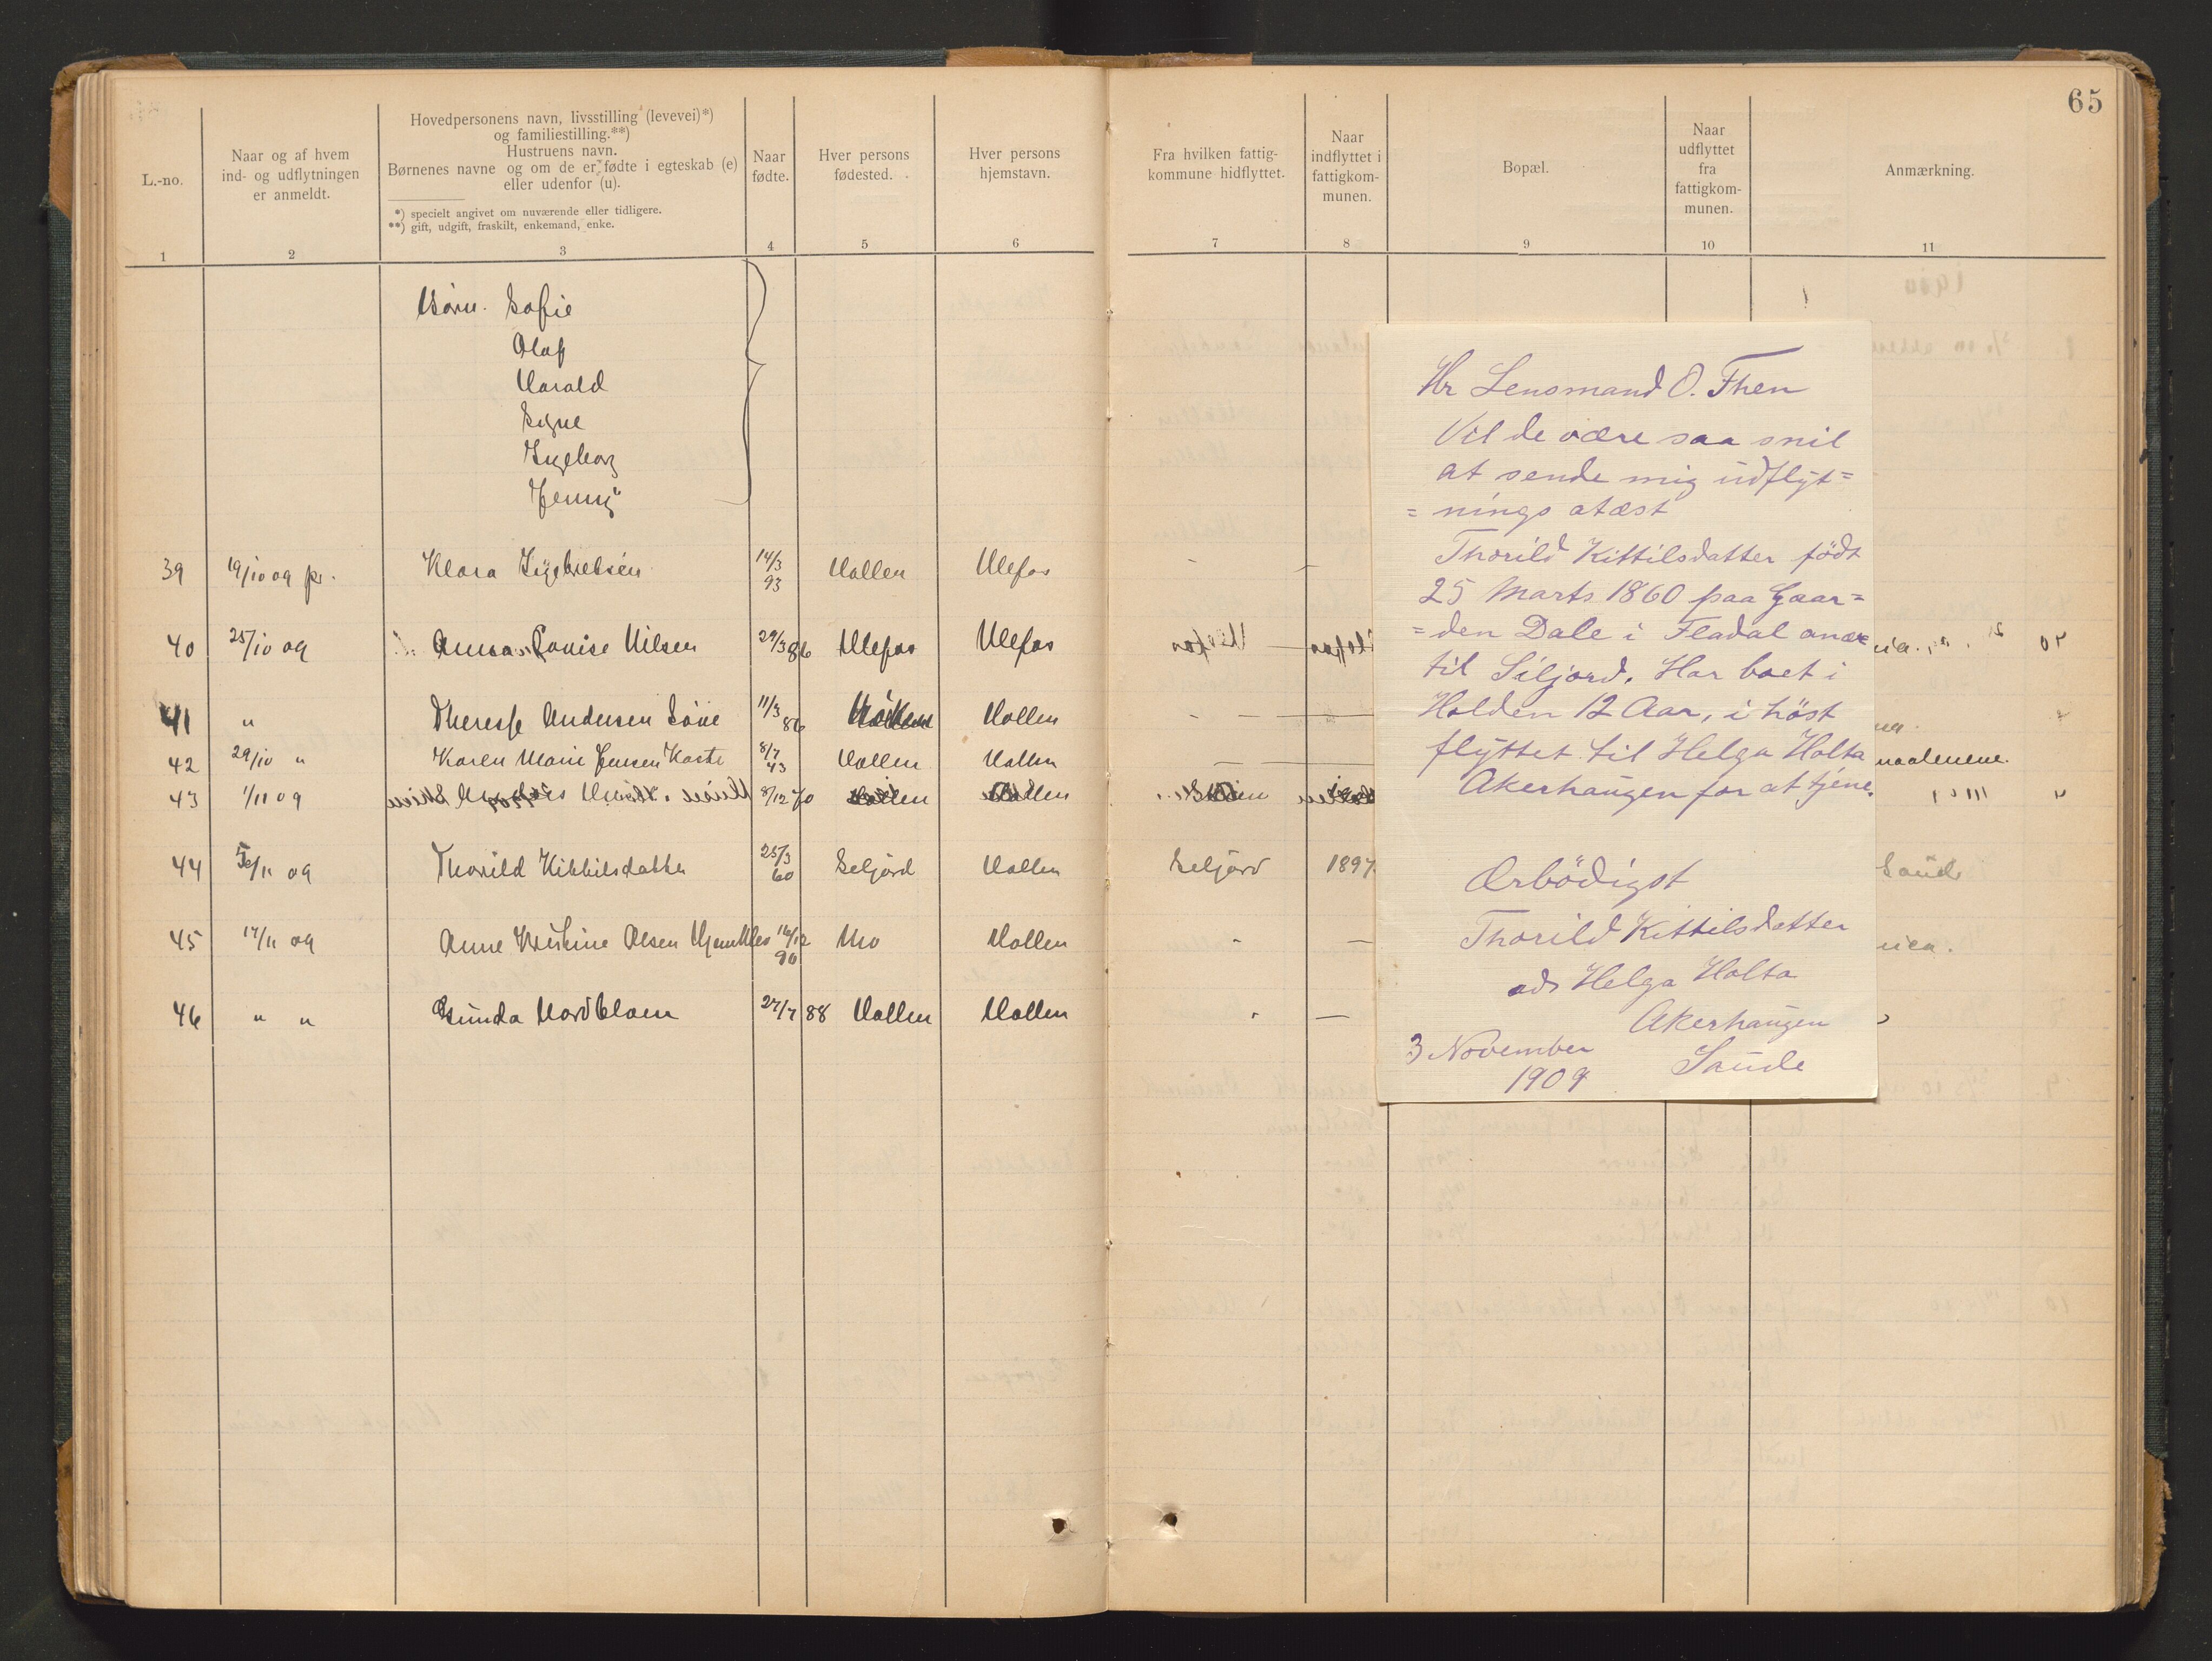 65
L.-no.
Naar og af hvem
ind- og udflytningen
er anmeldt.
Hovedpersonens navn, livsstilling (levevei)*)
og familiestilling.**)
Hustruens navn.
Børnenes navne og om de er fødte i egteskab (e)
eller udenfor (u).
*) specielt angivet om nuværende eller tidligere.
**) gift, udgift, fraskilt, enkemand, enke.
Naar
fødte.
Hver persons
fødested.
Hver persons
hjemstavn.
Fra hvilken fattig-
kommune hidflyttet.
Naar
indflyttet i
fattigkom-
munen.
Bopæl.
Naar
udflyttet
fra
fattigkom-
munen.
Anmærkning.
1 2 3 4 5 6 7 8 9 10 11
Børn. Sofie
Olaf
Harald
Signe
Ingeborg
Jenny
39 19/10 09 pr. Klara Ingebretsen 14/3 93 Hollen Ulefos - -
40 25/10 09 Anna Lovise Nilsen 29/3 86 Ulefos Ulefos
41 " Therese Andersen Søve 11/3 86 Hollen - - -
42 29/10 " Karen Marie Jensen Kaste 8/7 43 Hollen Hollen - - naalenene.
43 1/11 09 8/12 70 Hollen Hollen Skien
44 5/11 09 Thorild Kittilsdatter 25/3 60 Seljord Hollen Seljord 1897. Saude
45 17/11 09 Anne Kristine Olsen 16/12 90 Mo Hollen - -
46 " " Gunda Nordblom 27/7 88 Hollen Hollen - -
Hr Lensmand O. Then
Vil de være saa snil
at sende mig udflyt=
=nings atæst
Thorild Kittilsdatter födt
25 Marts 1860 paa Gaar=
=den Dale i Fladal anær
til Siljord. Har boet i
Holden 12 Aar, i höst
flyttet til Helga Holta
Akerhaugen for at tjene.
Ærbödigst
Thorild Kittilsdatter
ads Helga Holta
Akerhaugen
Saude
3 November
1909